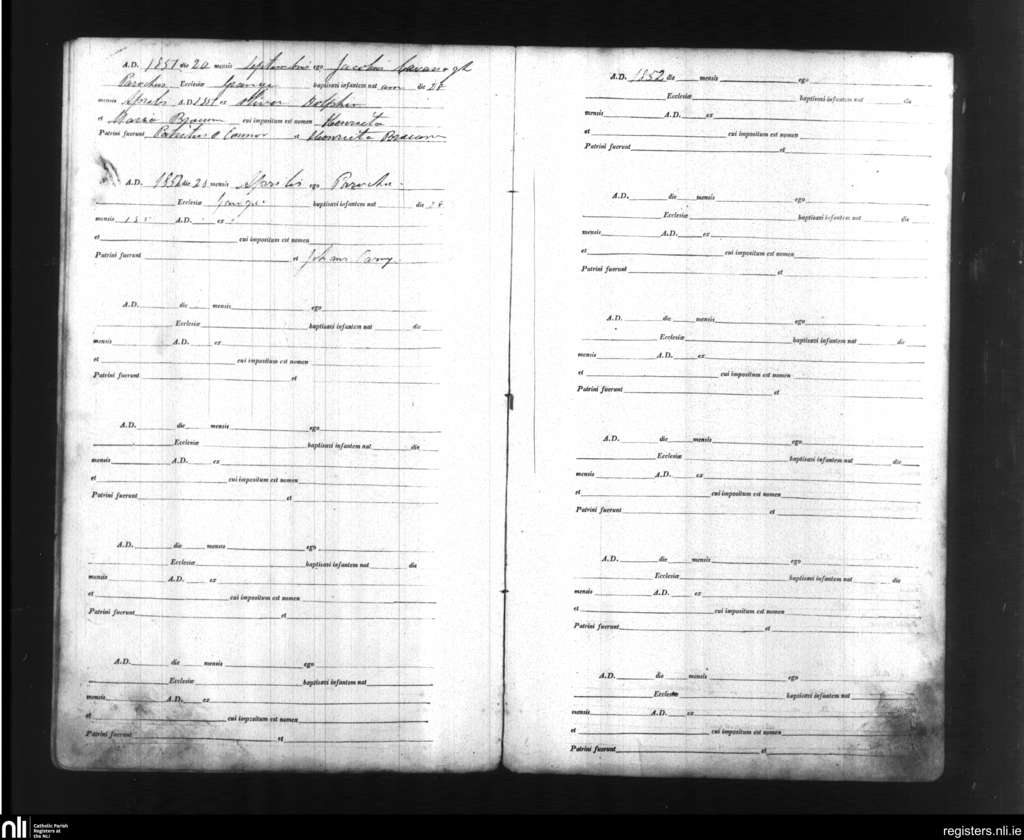 A.D. 1851 die 20 mensis Septembris ego Jacobus Cavanagh
Parochus Ecclesiæ baptisavi infantem nat am die 28
mensis Aprilis A.D. 1851 ex Oliver Dolphin
et Maria Brown cui impositum est nomen Henrieta
Patrini fuerunt Patritius O Connor et Henrieta Brown
A.D. 1852 die 23 mensis Aprilis ego
Ecclesiæ baptisavi infantem nat die 28
mensis A.D. ex
et cui impositum est nomen
Patrini fuerunt et Johanna
A.D. die mensis ego
Ecclesiæ baptisavi infantem nat die
mensis A.D. ex
et cui impositum est nomen
Patrini fuerunt et
A.D. die mensis ego
Ecclesiæ baptisavi infantem nat die
mensis A.D. ex
et cui impositum est nomen
Patrini fuerunt et
A.D. die mensis ego
Ecclesiæ baptisavi infantem nat die
mensis A.D. ex
et cui impositum est nomen
Patrini fuerunt et
A.D. die mensis ego
Ecclesiæ baptisavi infantem nat
mensis A.D. ex
et cui impositum est nomen
Patrini fuerunt et
A.D. 1852 die mensis ego
Ecclesiæ baptisavi infantem nat die
mensis A.D. ex
et cui impositum est nomen
Patrini fuerunt et
A.D. die mensis ego
Ecclesiæ baptisavi infantem nat die
mensis A.D. ex
et cui impositum est nomen
Patrini fuerunt et
A.D. die mensis ego
Ecclesiæ baptisavi infantem nat die
mensis A.D. ex
et cui impositum est nomen
Patrini fuerunt et
A.D. die mensis ego
Ecclesiæ baptisavi infantem nat die
mensis A.D. ex
et cui impositum est nomen
Patrini fuerunt et
A.D. die mensis ego
Ecclesiæ baptisavi infantem nat die
mensis A.D. ex
et cui impositum est nomen
Patrini fuerunt et
A.D. die mensis ego
Ecclesiæ baptisavi infantem nat
mensis A.D. ex
et cui impositum est nomen
Patrini fuerunt et
nli Catholic Parish
Registers at
the NLI
registers.nli.ie